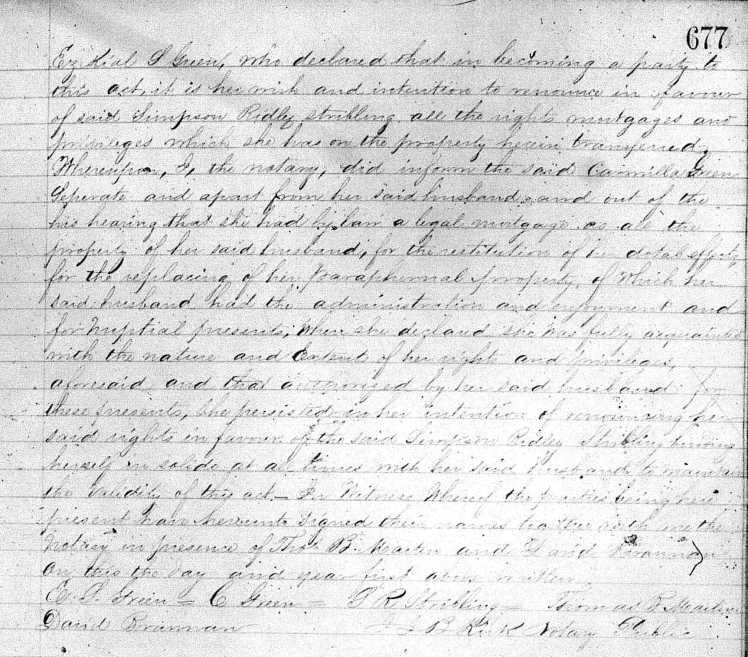 677
Ezekial S Green, who declared that in becoming a party to
this act, it is her wish and intention to renounce in favour
of said Simpson Ridley stribling all the rights mortgages and
privileges which she has on the property herein transferred,
Whereupon, I, the notary, did inform the said Carmilla Green
Seperate and apart from her said husband and out of the
his hearing that she had by law a legal mortgage as all the
property of her said husband, for the restitution of her dotal effects,
for the replacing of her paraphernal property, of Which her
said husband had the administration and enjoyment and
for nuptial presents, When she declared she was fully acquainted
with the nature and Extent of her rights and privileges,
aforesaid and that authorized by her said husband for
these presents, She persisted in her intention of renouncing her
said rights in favour of the said Simpson Ridley Stribling binding
herself in solido at all times with her said Husband to maintain
the Validity of this act — In Witness Whereof the parties being here
present have hereunto Signed their names together with me the
Notary in presence of Thos B. Martin and David Brannan
On this the day and year first above written
E. S. Green = C Green = S R Stribling = Thomas B. Martin
David Brannan J B Kirk Notary Public